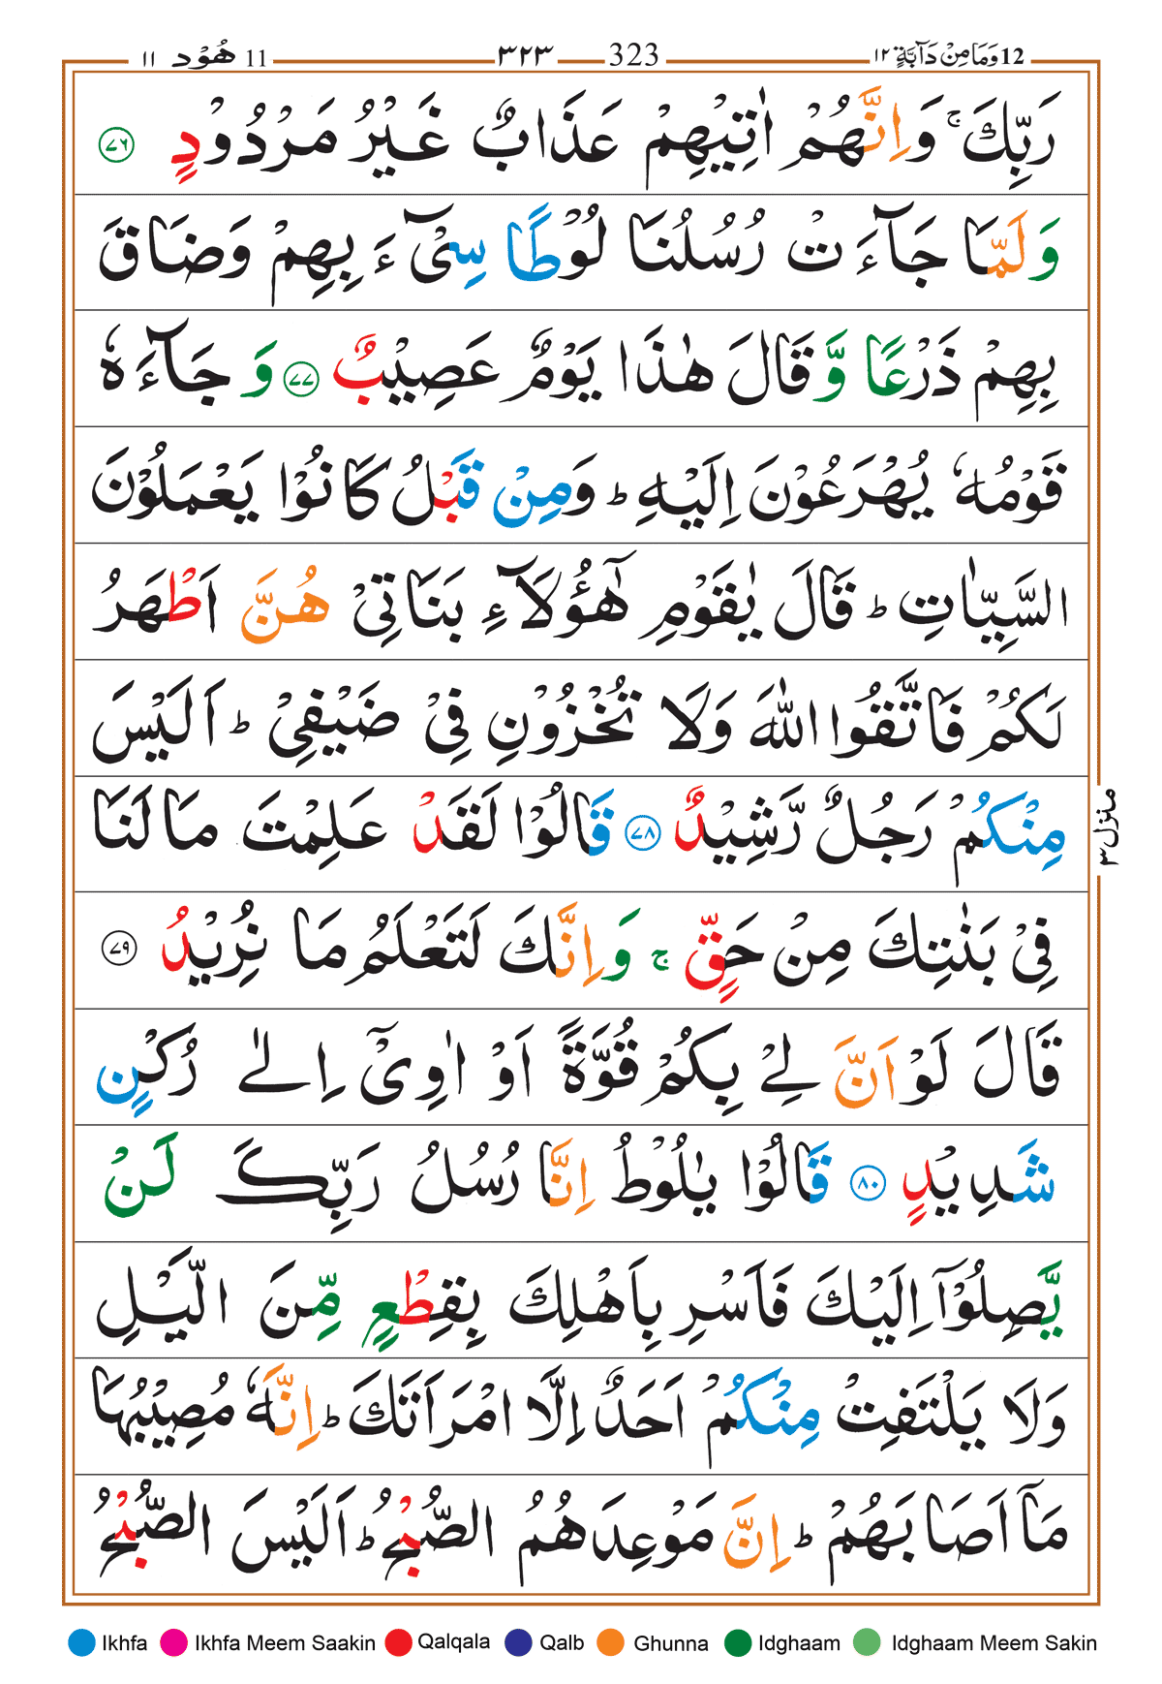 12 وَمَا مِنْ دَآبَّةٍ ١٢ 323 ٣٢٣ 11 هُوْد ١١
رَبِّكَ ۚ وَاِنَّهُمْ اٰتِيْهِمْ عَذَابٌ غَيْرُ مَرْدُوْدٍ ٧٦
وَلَمَّا جَآءَتْ رُسُلُنَا لُوْطًا سِیْٓءَ بِهِمْ وَضَاقَ
بِهِمْ ذَرْعًا وَّقَالَ هٰذَا يَوْمٌ عَصِيْبٌ ٧٧ وَجَآءَهٗ
قَوْمُهٗ يُهْرَعُوْنَ اِلَيْهِ ؕ وَمِنْ قَبْلُ كَانُوْا يَعْمَلُوْنَ
السَّيِّاٰتِ ؕ قَالَ يٰقَوْمِ هٰٓؤُلَآءِ بَنَاتِیْ هُنَّ اَطْهَرُ
لَكُمْ فَاتَّقُوا اللّٰهَ وَلَا تُخْزُوْنِ فِیْ ضَيْفِیْ ؕ اَلَيْسَ
مِنْكُمْ رَجُلٌ رَّشِيْدٌ ٧٨ قَالُوْا لَقَدْ عَلِمْتَ مَا لَنَا
فِیْ بَنٰتِكَ مِنْ حَقٍّ ۚ وَاِنَّكَ لَتَعْلَمُ مَا نُرِيْدُ ٧٩
قَالَ لَوْ اَنَّ لِیْ بِكُمْ قُوَّةً اَوْ اٰوِیْٓ اِلٰی رُكْنٍ
شَدِيْدٍ ٨٠ قَالُوْا يٰلُوْطُ اِنَّا رُسُلُ رَبِّكَ لَنْ
يَّصِلُوْٓا اِلَيْكَ فَاَسْرِ بِاَهْلِكَ بِقِطْعٍ مِّنَ الَّيْلِ
وَلَا يَلْتَفِتْ مِنْكُمْ اَحَدٌ اِلَّا امْرَاَتَكَ ؕ اِنَّهٗ مُصِيْبُهَا
مَآ اَصَابَهُمْ ؕ اِنَّ مَوْعِدَهُمُ الصُّبْحُ ؕ اَلَيْسَ الصُّبْحُ
منزل ٣
Ikhfa Ikhfa Meem Saakin Qalqala Qalb Ghunna Idghaam Idghaam Meem Sakin